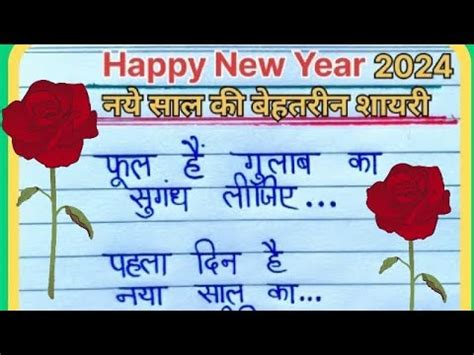 Happy New Year 2024
नये साल की बेहतरीन शायरी
फूल हैं गुलाब का
सुगंध लीजिए...
पहला दिन है
नया साल का...